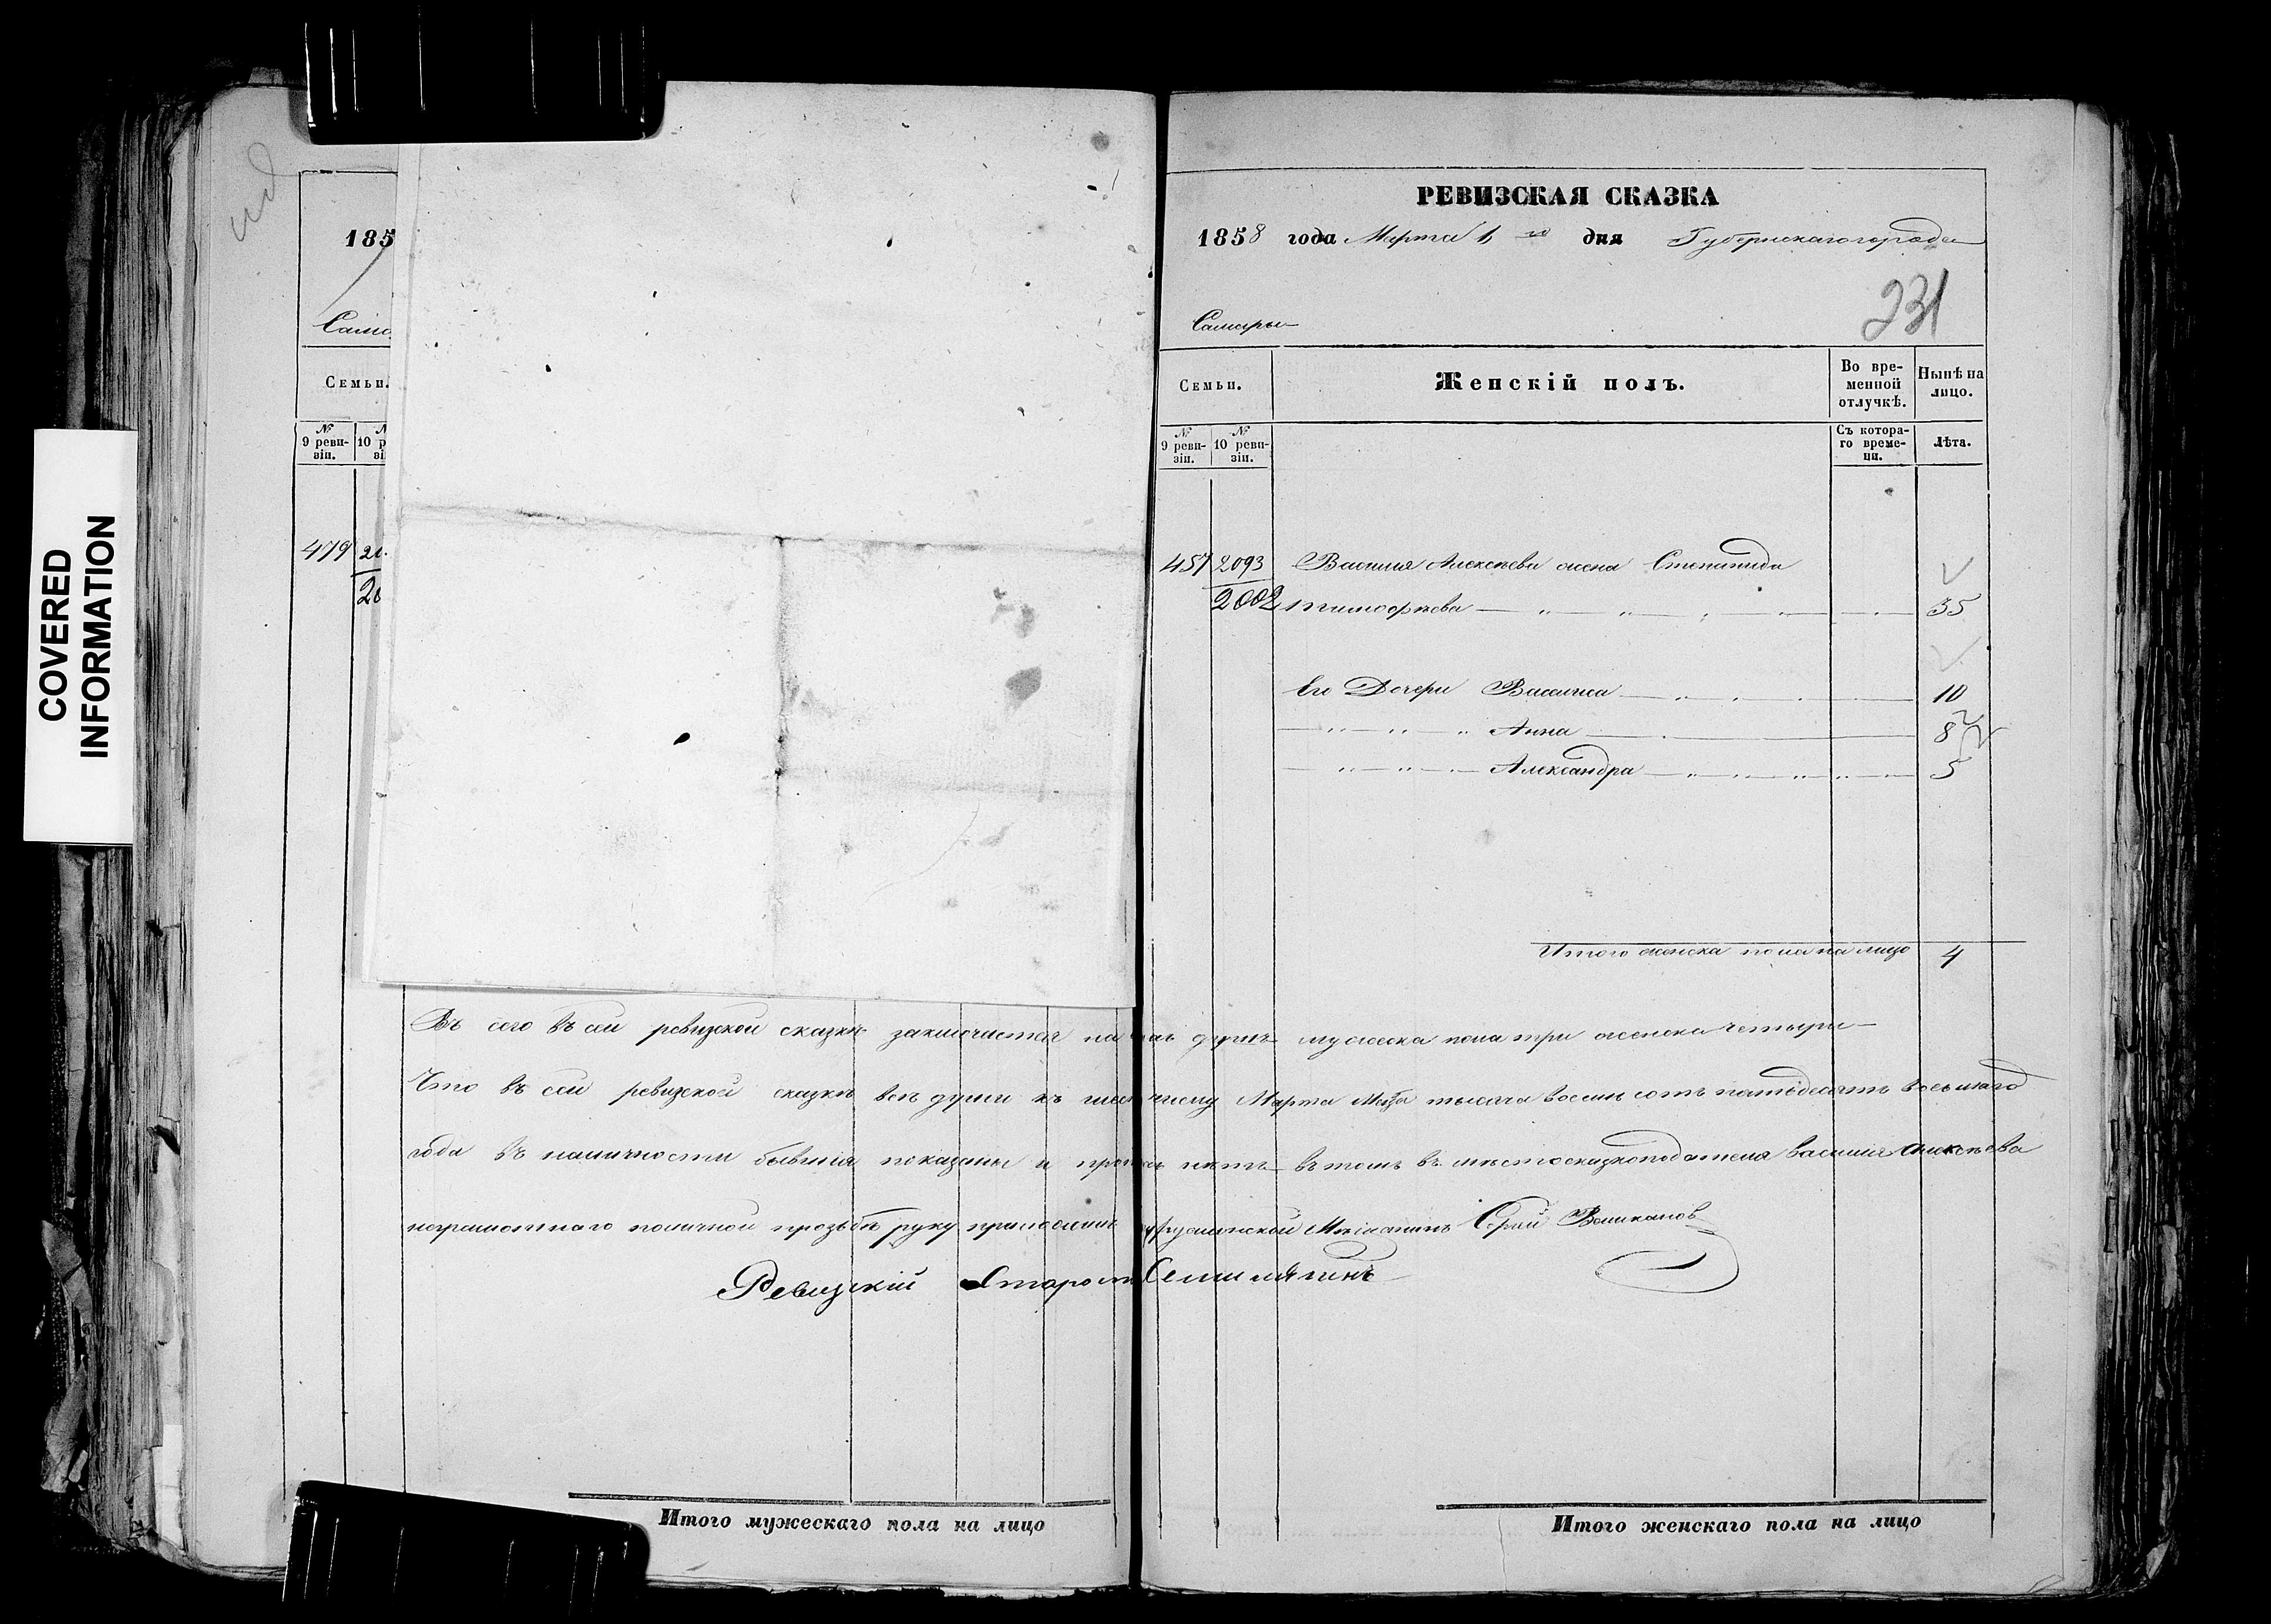 COVERED
INFORMATION
185
Само
Семьи.
№
9 реви-
зіи.
10 р
479
20
РЕВИЗСКАЯ СКАЗКА
1858 года Марта 1 го дня Губернскаго города
231
Самары
Семьи.
Женскій полъ.
Во вре-
менной
отлучкѣ.
Нынѣ на
лицо.
№
9 реви-
зіи.
№
10 реви-
зіи.
Съ котора-
го време-
ни.
Лѣта.
457 2093 Василія Алексѣева жена Степанида
2002 Тимофѣева 35
Его Дочери Васииса 10
Анна 8
Александра 5
Итого женска пола на лицо 4
Въ сей ревизской сказкѣ заключается душъ мужеска пола три женска четыри
Что въ сей ревизской сказкѣ всѣ души къ Марта тысяча восемь сотъ пятьдесятъ восьмаго
года въ наличности бывшія показаны и нѣтъ въ томъ въ мѣсто сказкоподателя василія Алексѣева
неграмотнаго поличной прозьбѣ руку приложилъ Великанов
Ревизкій Старост Семшлягинъ
Итого мужескаго пола на лицо
Итого женскаго пола на лицо